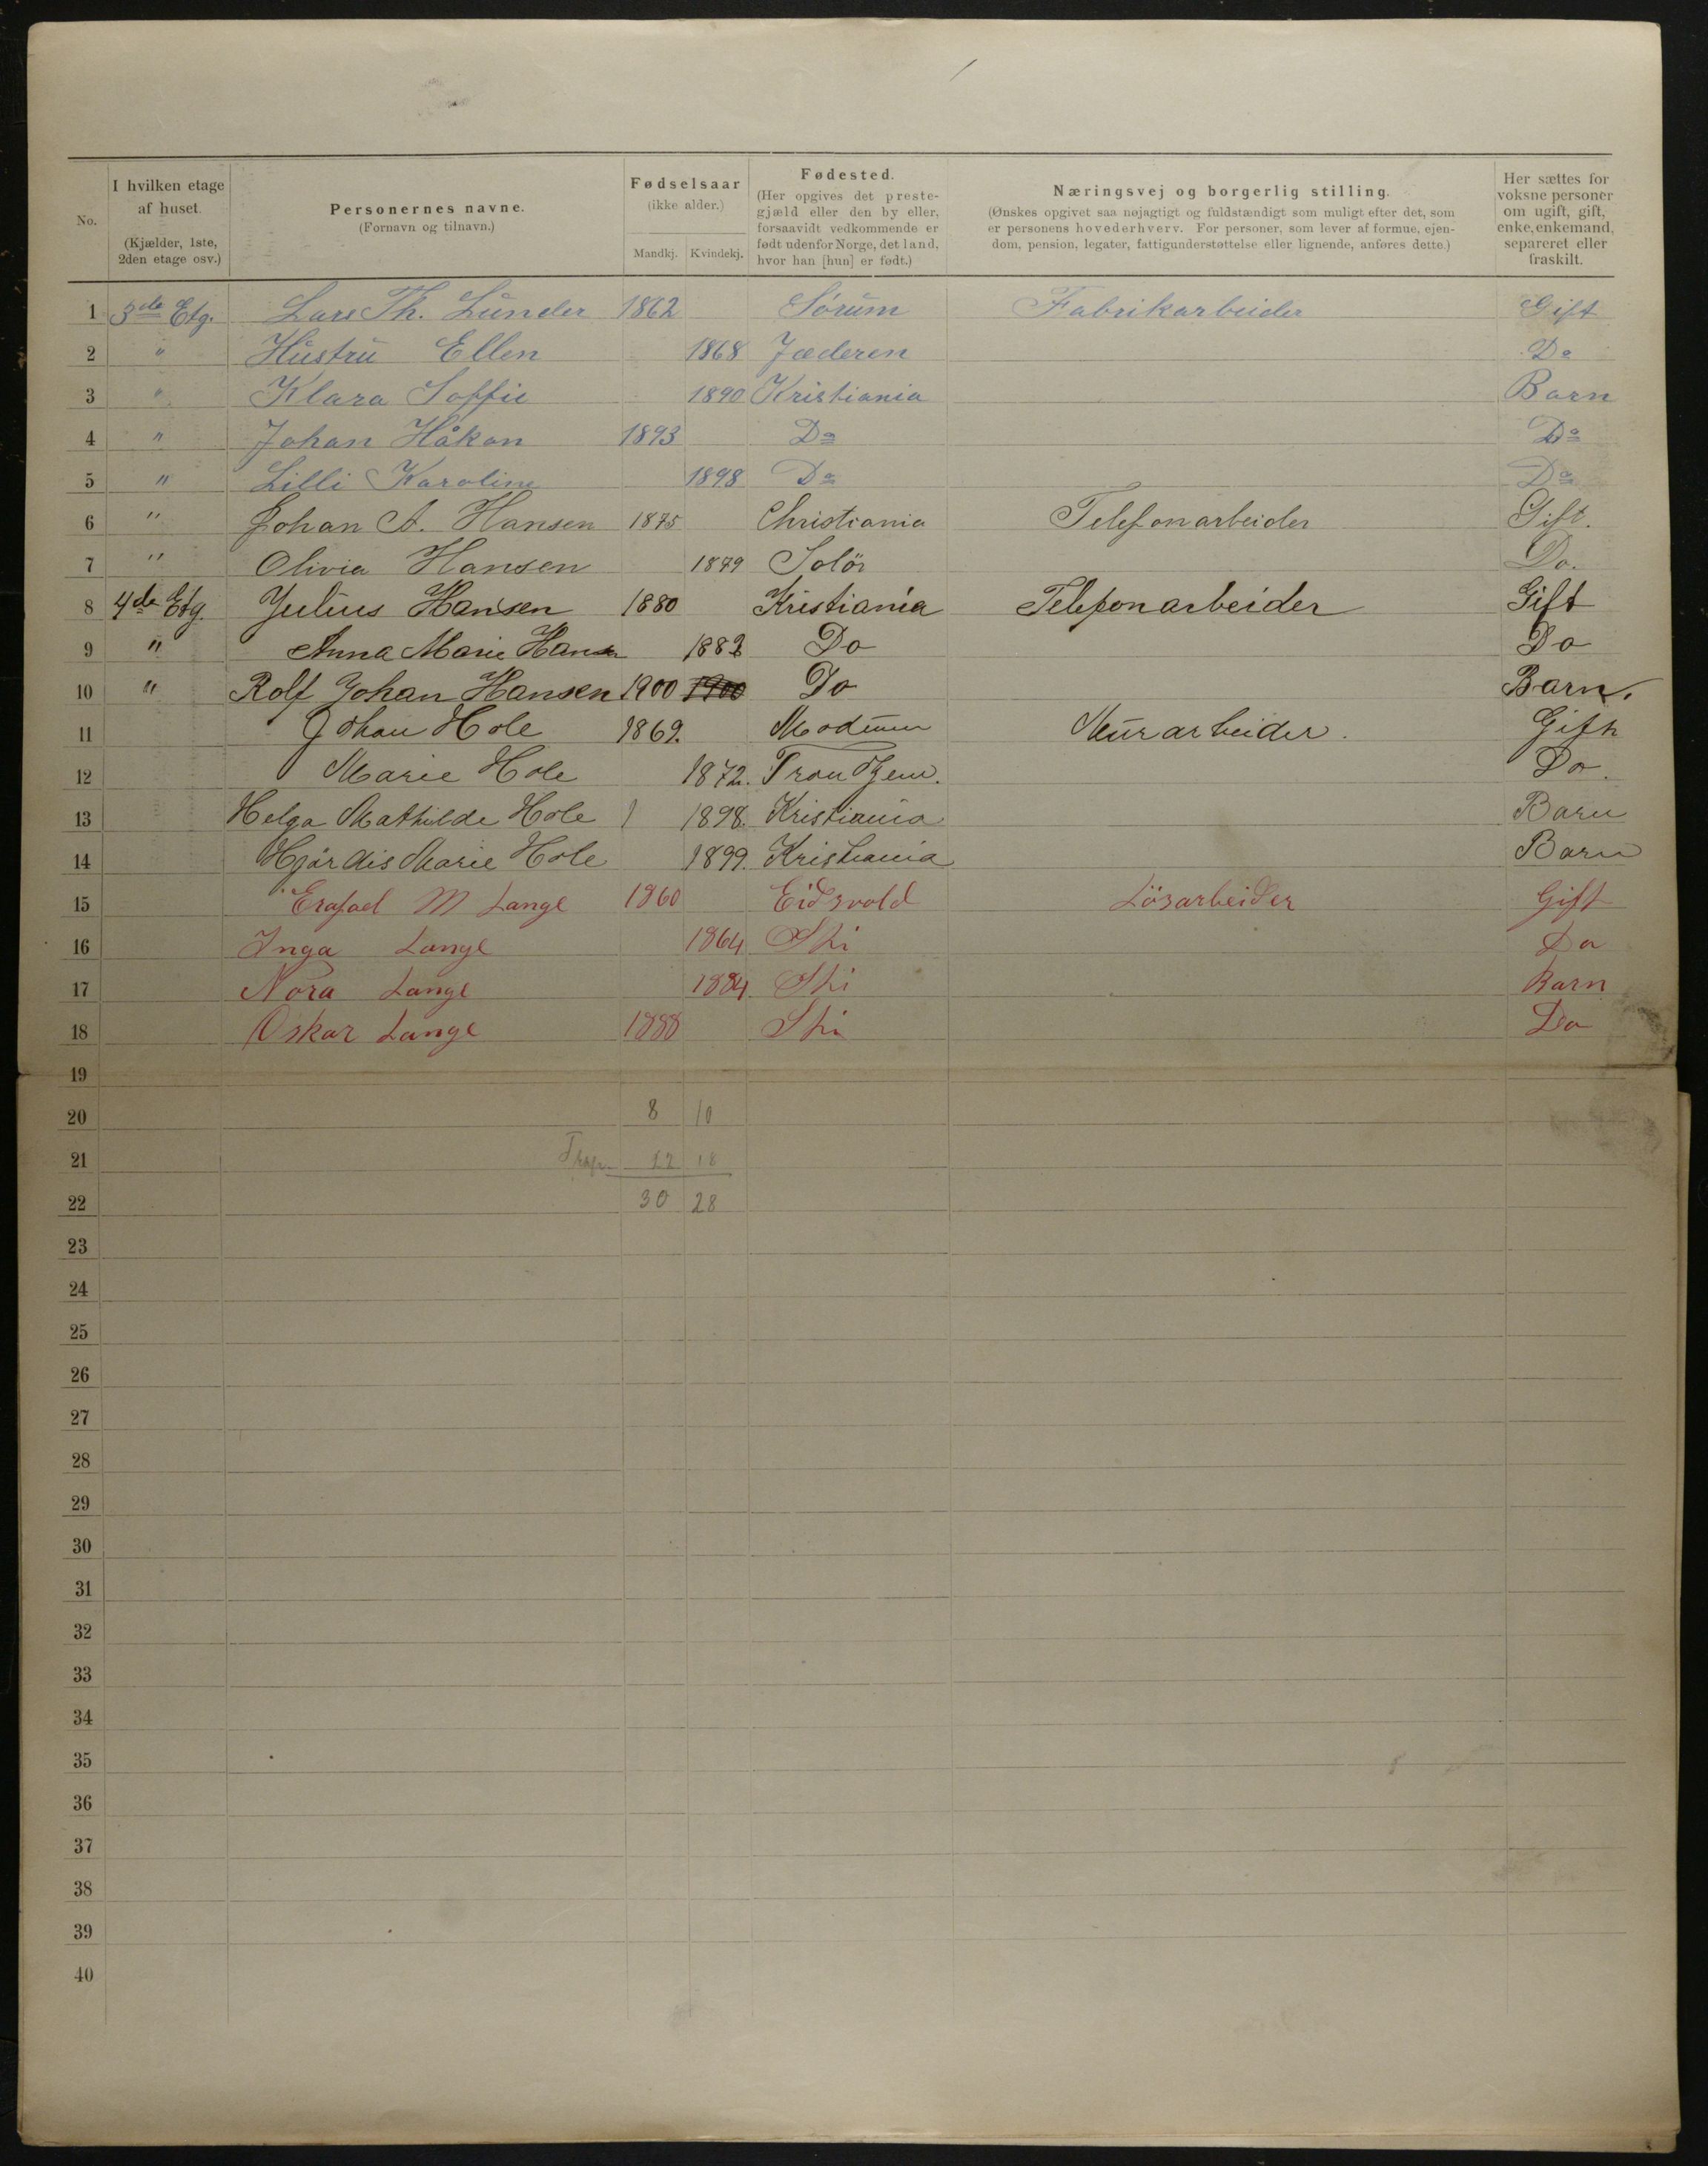 No.
I hvilken etage af huset. (Kjælder, 1ste, 2den etage osv.)
Personernes navne. (Fornavn og tilnavn.)
Fødselsaar (ikke alder.) Mandkj. Kvindekj.
Fødested. (Her opgives det prestegjæld eller den by eller, forsaavidt vedkommende er født udenfor Norge, det land, hvor han [hun] er født.)
Næringsvej og borgerlig stilling. (Ønskes opgivet saa nøjagtigt og fuldstændigt som muligt efter det, som er personens hovederhverv. For personer, som lever af formue, ejendom, pension, legater, fattigunderstøttelse eller lignende, anføres dette.)
Her sættes for voksne personer om ugift, gift, enke, enkemand, separeret eller fraskilt.
1 3de Etg. Lars Th. Lunder 1862 Sørum Fabrikarbeider Gift
2 " Hustru Ellen 1868 Jæderen Do
3 " Klara Soffie 1890 Kristiania Barn
4 " Johan Håkon 1893 Do Do
5 " Lilli Karoline 1898 Do Do
6 " Johan A. Hansen 1875 Christiania Telefonarbeider Gift.
7 " Olivia Hansen 1879 Solör Do.
8 4de Etg. Julius Hansen 1880 Kristiania Telefonarbeider Gift
9 " Anna Marie Hansen 1882 Do Do
10 " Rolf Johan Hansen 1900 1900 Do Barn.
11 Johan Hole 1869. Modum Murarbeider. Gift
12 Marie Hole 1872. Trondhjem. Do.
13 Helga Mathilde Hole 1 1898. Kristiania Barn
14 Hjördis Marie Hole 1899. Kristiania Barn
15 Erafael M Lange 1860 Eidsvold Lösarbeider Gift
16 Inga Lange 1864 Ski Do
17 Nora Lange 1884 Ski Barn
18 Oskar Lange 1888 Ski Do
19
20 8 10
21 22 18
22 30 28
23
24
25
26
27
28
29
30
31
32
33
34
35
36
37
38
39
40